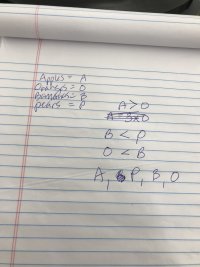 Apples = A
Oranges = O
Bananas = B
pears = P
A > O
B < P
O < B
A, P, B, O